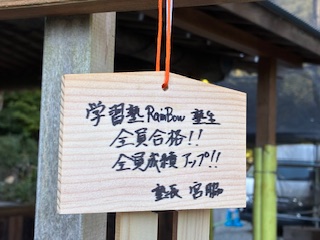 学習塾RainBow 塾生
全員合格!!
全員成績アップ!!
塾長 宮脇